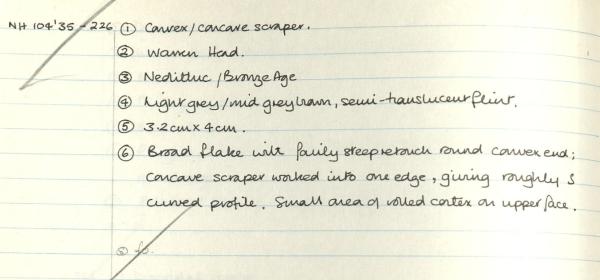 NH 104'35 - 226 ① Convex/concave scraper.
② Warren Head.
③ Neolithic / Bronze Age
④ Light grey/mid grey brown, semi-translucent flint.
⑤ 3.2cm x 4cm.
⑥ Broad flake with fairly steep retouch round convex end;
concave scraper worked into one edge, giving roughly S
curved profile. Small area of rolled cortex on upper face.
⑧